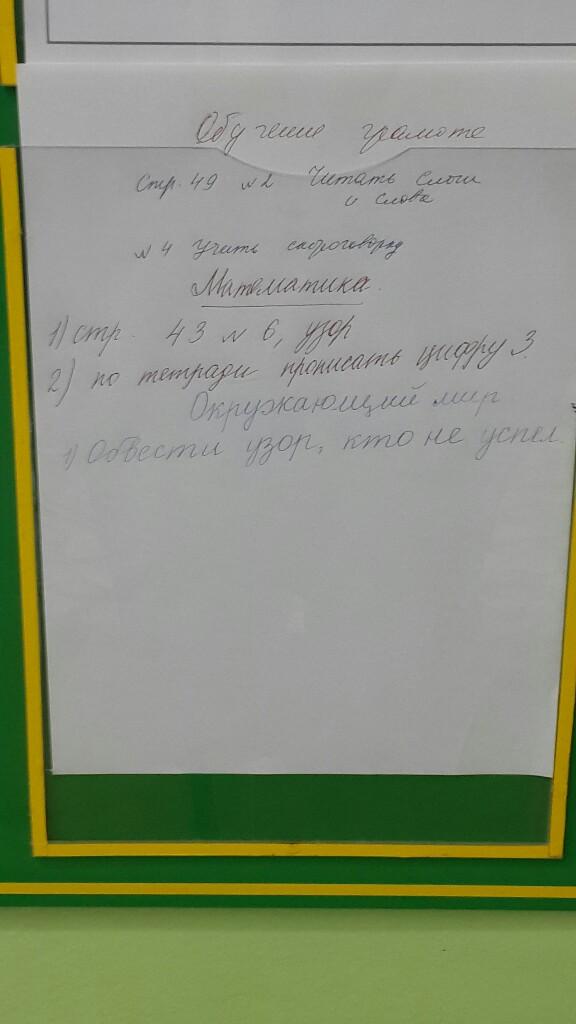 Обучение грамоте
Стр. 49 №2 Читать слоги
и слова
№4 Учить скороговорку
Математика.
1) стр. 43 № 6, узор
2) по тетради прописать цифру 3.
Окружающий мир
1) Обвести узор, кто не успел.